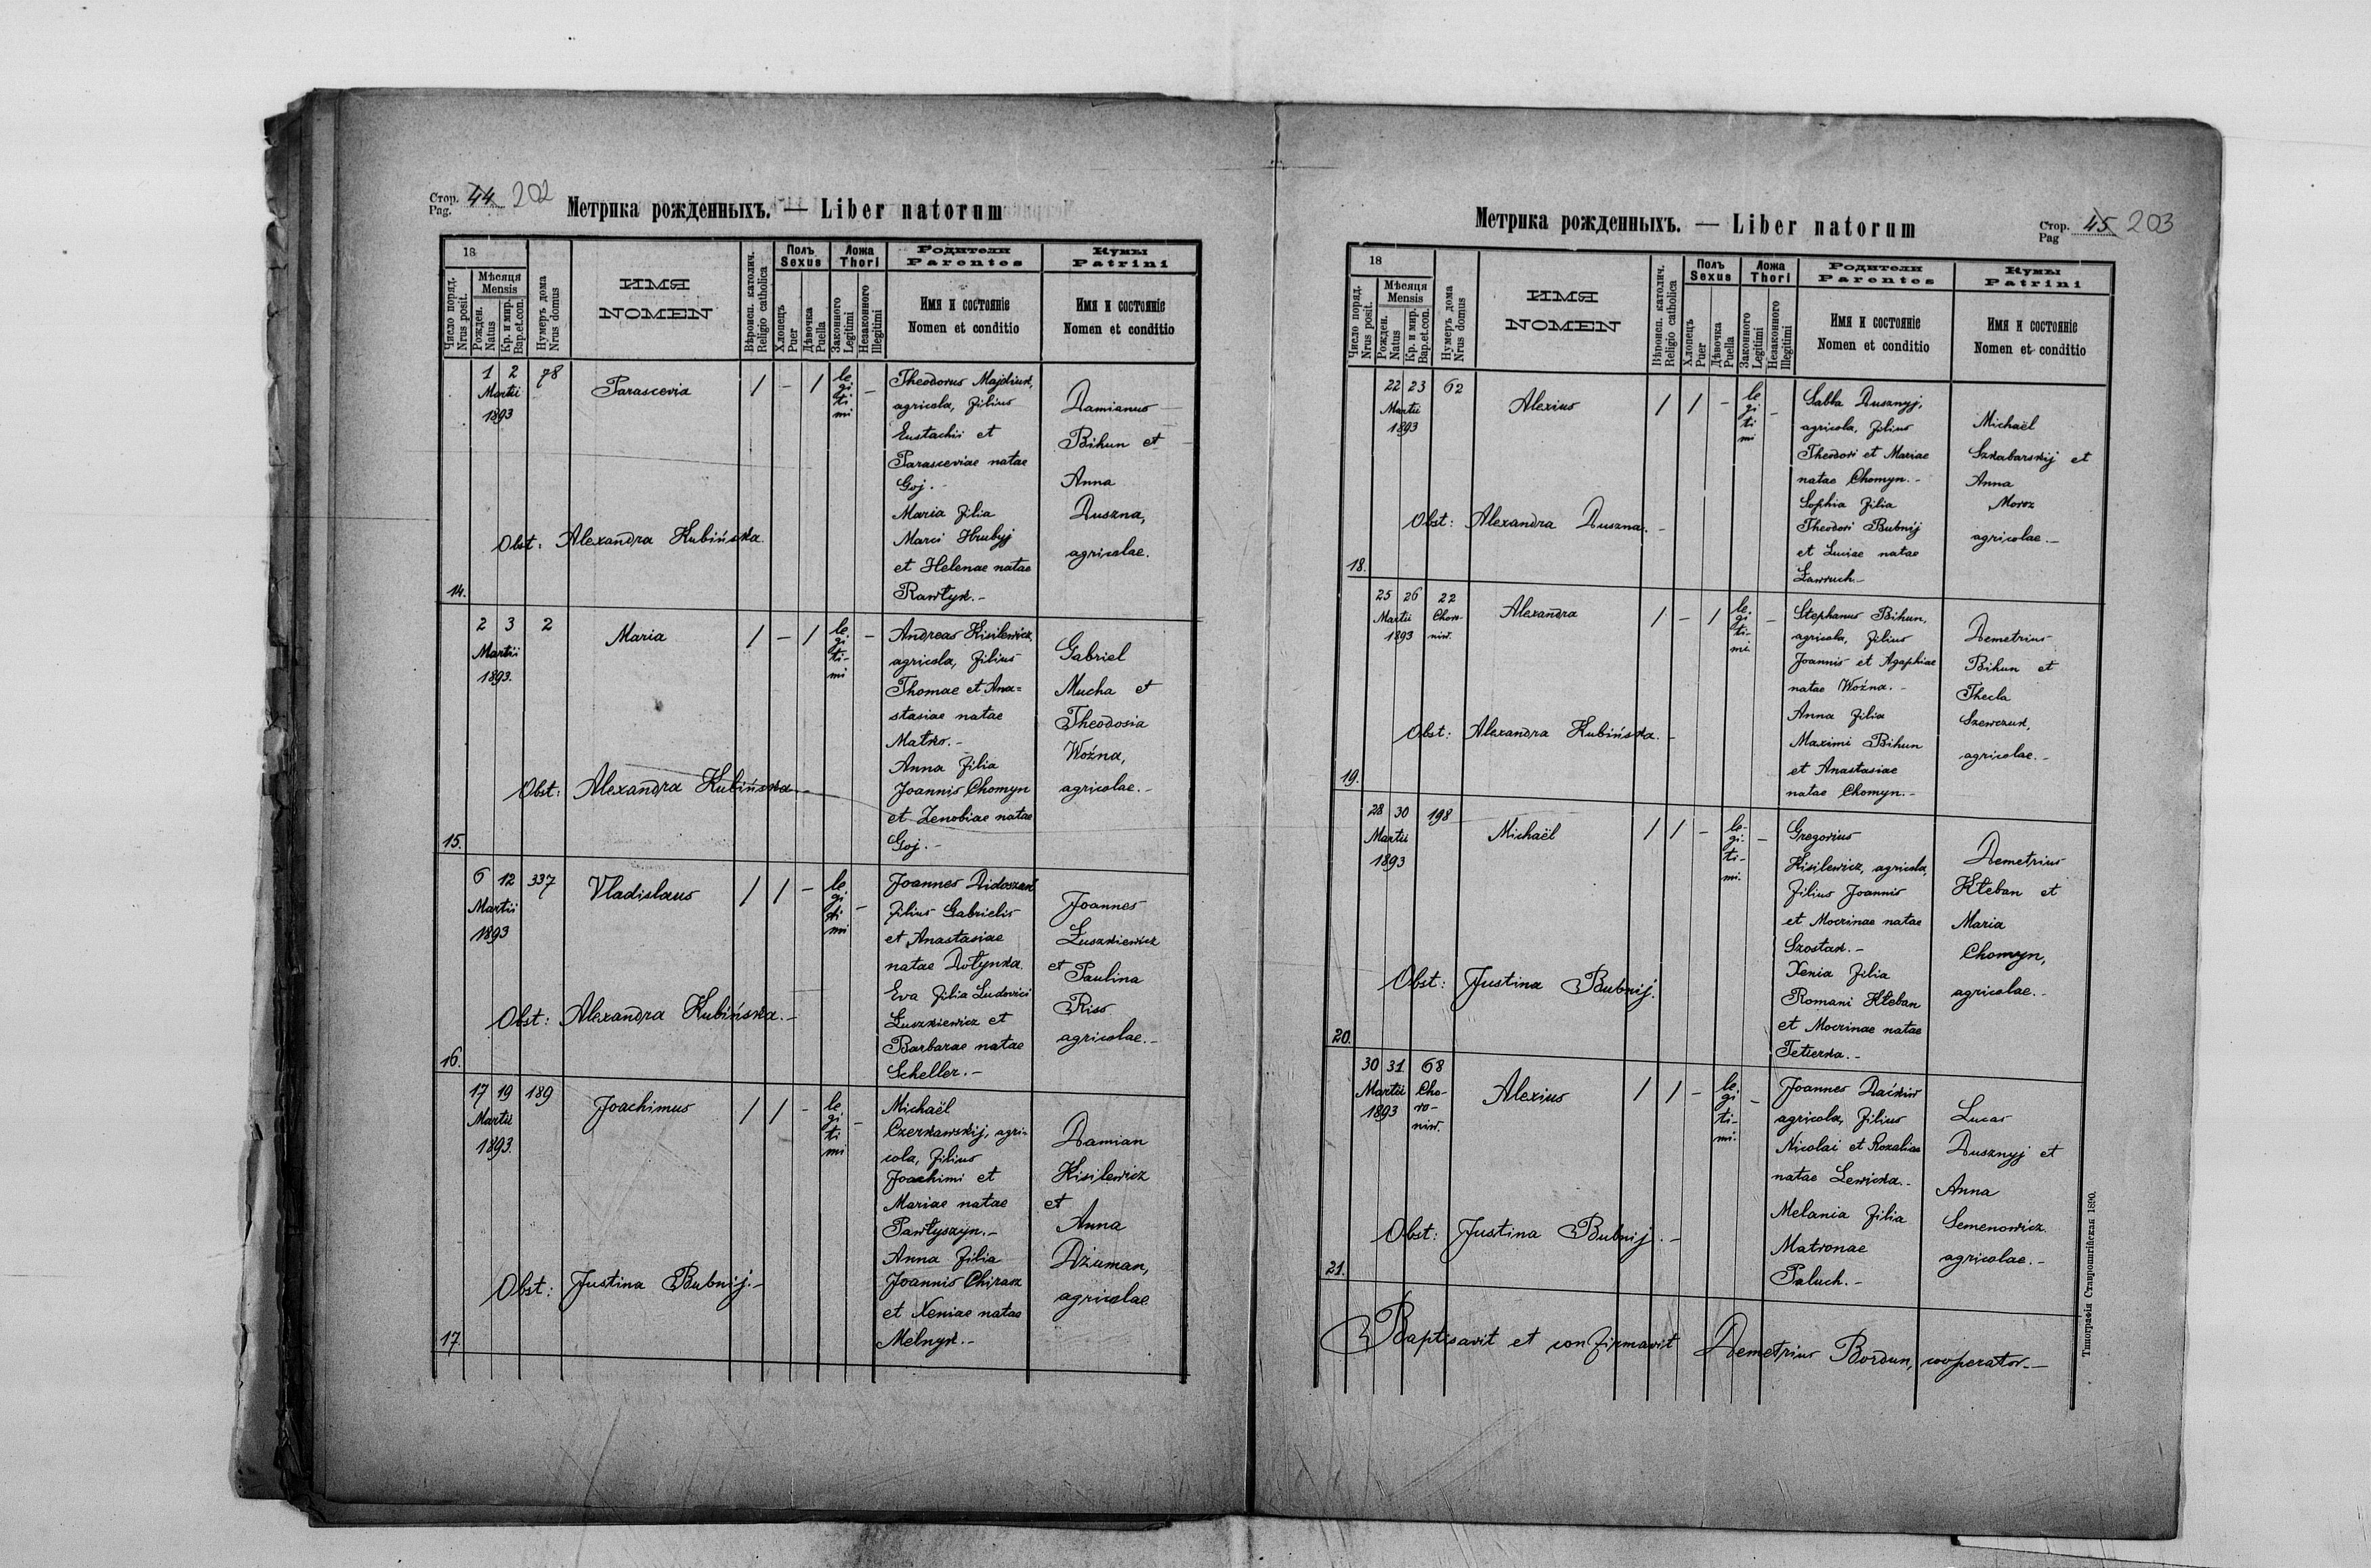 Стор. 44 202
Pag.
Метрика рожденныхъ. — Liber natorum
18
Число поряд.
Nrus posit.
Мѣсяця
Mensis
Рожден.
Natus
Кр. и мир.
Bap.et.con.
Нумеръ дома
Nrus domus
ИМЯ
NOMEN
Вѣроисп. католич.
Religio catholica
Полъ
Sexus
Хлопецъ
Puer
Дѣвочка
Puella
Ложа
Thori
Законного
Legitimi
Незаконного
Illegitimi
Родители
Parentes
Имя и состояніе
Nomen et conditio
Кумы
Patrini
Имя и состояніе
Nomen et conditio
14.
1 2 78
Martii
1893
Parascevia
/ - / le
gi
ti
mi -
Theodorus Majdiuk,
agricola, filius
Eustachii et
Parasceviae natae
Goj. -
Maria filia
Marci Hrubyj
et Helenae natae
Rawłyk. -
Damianus
Bihun et
Anna
Duszna,
agricolae.
Obst: Alexandra Kubińska.
15.
2 3 2
Martii
1893.
Maria
/ - / le
gi
ti-
mi -
Andreas Kisilewicz,
agricola, filius
Thomae et Ana=
stasiae natae
Matko. -
Anna filia
Joannis Chomyn
et Zenobiae natae
Goj. -
Gabriel
Mucha et
Theodosia
Woźna,
agricolae. -
Obst: Alexandra Kubińska -
16.
6 12 337
Martii
1893
Vladislaus
/ / - le
gi
ti
mi -
Joannes Didoszak
filius Gabrielis
et Anastasiae
natae Dołynka.
Eva filia Ludovici
Łuszkiewicz et
Barbarae natae
Scheller. -
Joannes
Łuszkiewicz
et Paulina
Riss
agricolae. -
Obst: Alexandra Kubińska. -
17.
17 19 189
Martii
1893.
Joachimus
/ / - le
gi
ti
mi -
Michaël
Czerkawskij, agri-
cola, filius
Joachimi et
Mariae natae
Pawłyszyn. -
Anna filia
Joannis Chirasz
et Xeniae natae
Melnyk. -
Damian
Kisilewicz
et
Anna
Dziuman,
agricolae
Obst: Justina Bubnij. -
Метрика рожденныхъ. — Liber natorum
Стор. 45 203
Pag
18
Число поряд.
Nrus posit.
Мѣсяця
Mensis
Рожден.
Natus
Кр. и мир.
Bap.et.con.
Нумеръ дома
Nrus domus
ИМЯ
NOMEN
Вѣроисп. католич.
Religio catholica
Полъ
Sexus
Хлопецъ
Puer
Дѣвочка
Puella
Ложа
Thori
Законного
Legitimi
Незаконного
Illegitimi
Родители
Parentes
Имя и состояніе
Nomen et conditio
Кумы
Patrini
Имя и состояніе
Nomen et conditio
18.
22 23 62
Martii
1893
Alexius
/ / - le
gi
ti
mi -
Sabba Dusznyj,
agricola, filius
Theodori et Mariae
natae Chomyn. -
Sophia filia
Theodori Bubnij
et Luciae natae
Ławruch -
Michaël
Szkabarskij et
Anna
Moroz
agricolae. -
Obst: Alexandra Duszna. -
19.
25 26 22
Martii Choro-
1893 niw.
Alexandra
/ - / le.
gi
ti-
mi. -
Stephanus Bihun,
agricola, filius
Joannis et Agaphiae
natae Woźna. -
Anna filia
Maximi Bihun
et Anastasiae
natae Chomyn. -
Demetrius
Bihun et
Thecla
Szewczuk,
agricolae. -
Obst: Alexandra Kubińska. -
20.
28 30 198
Martii
1893
Michaël
/ / - le-
gi-
ti-
mi. -
Gregorius
Kisilewicz, agricola,
filius Joannis
et Mocrinae natae
Szostak. -
Xenia filia
Romani Kłeban
et Mocrinae natae
Teterka. -
Demetrius
Kłeban et
Maria
Chomyn,
agricolae. -
Obst: Justina Bubnij.
21.
30 31 68
Martii Cho-
1893 ro-
niw.
Alexius
/ / - le.
gi
ti-
mi. -
Joannes Daćkiw
agricola, filius
Nicolai et Rozaliae
natae Lewicka. -
Melania filia
Matronae
Paluch. -
Lucas
Dusznyj et
Anna
Semenowicz
agricolae. -
Obst: Justina Bubnij. -
Baptisavit et confirmavit Demetrius Bordun, cooperator. -
Типографія Ставропигійская 1890.